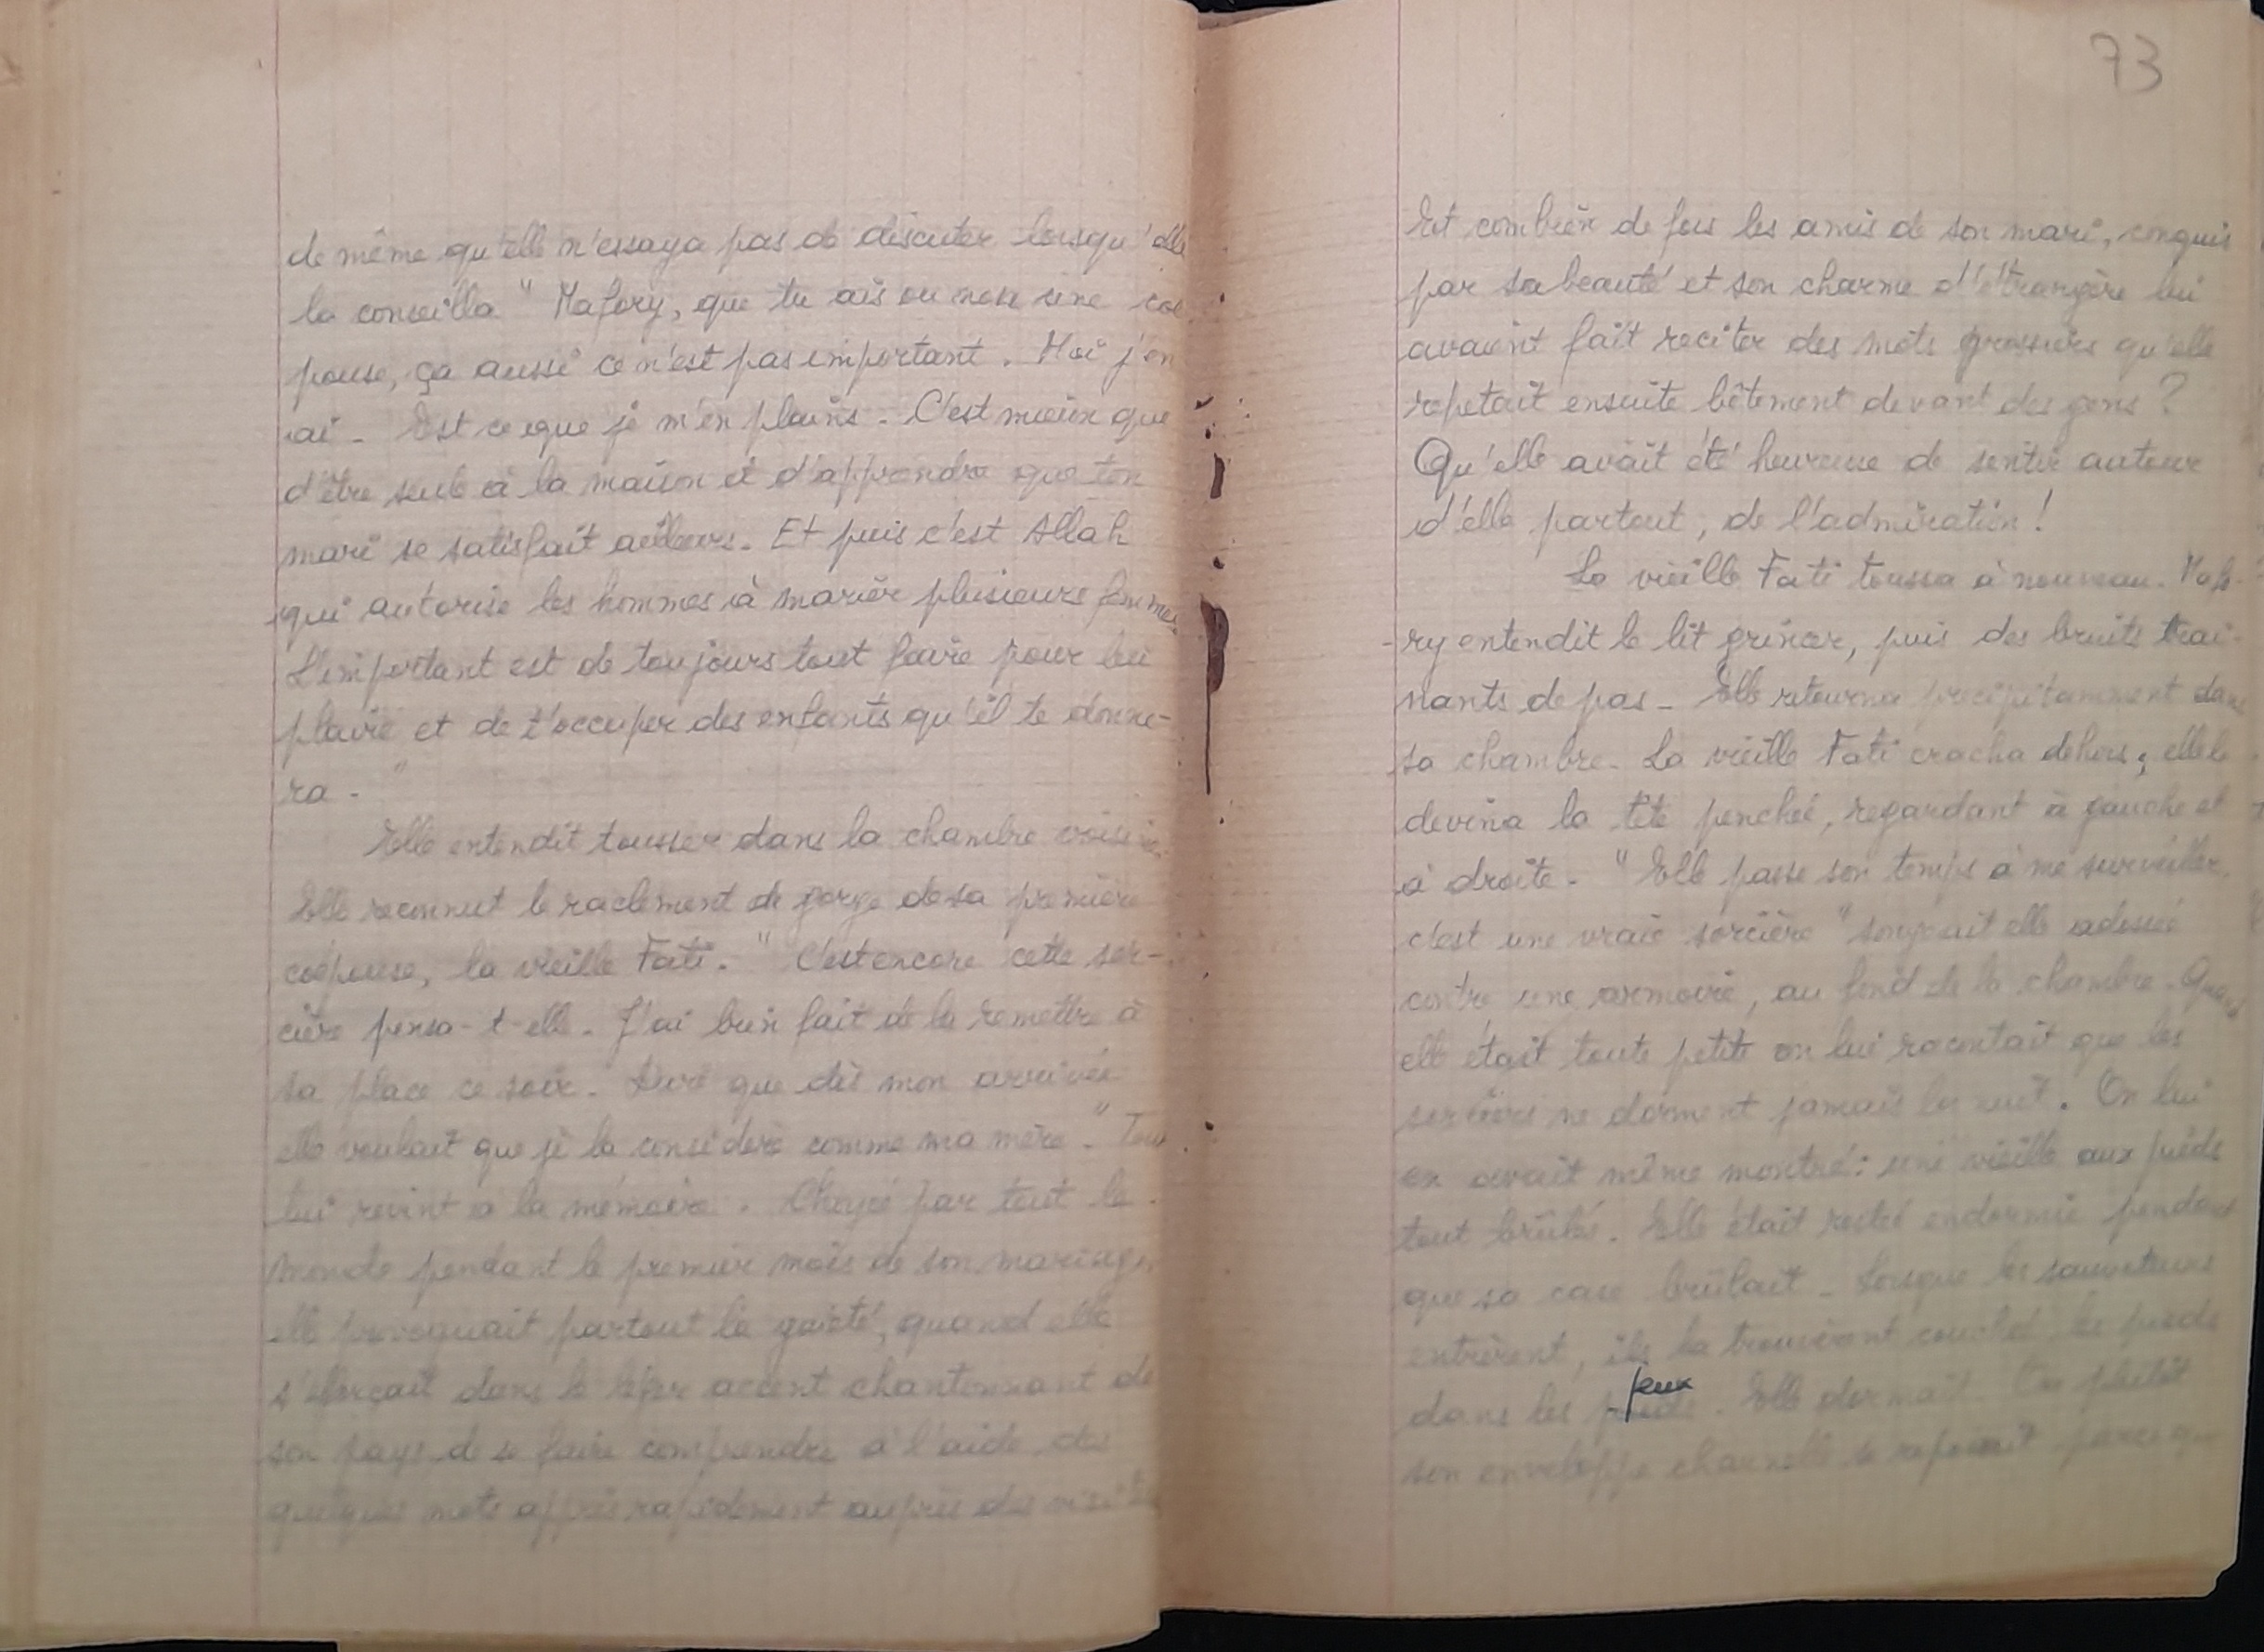 de même qu'elle n'essaya pas de discuter lorsqu'elle
la conseilla " Mafory, que tu ais ou non une coé
pouse, ça aussi ce n'est pas important. Moi j'en
ai - Est ce que je m'en plains - C'est mieux que
d'être seule à la maison et d'apprendre que ton
mari se satisfait ailleurs. Et puis c'est Allah
qui autorise les hommes à marier plusieurs femmes.
L'important est de toujours tout faire pour lui
plaire et de t'occuper des enfants qu'il te donne-
ra - "
Elle entendit tousser dans la chambre voisine.
Elle reconnut le raclement de gorge de sa première
coépouse, la vieille Fati. " C'est encore cette sor-
cière pensa-t-elle. J'ai bien fait de la remettre à
sa place ce soir. Dire que dès mon arrivée
elle voulait que je la considère comme ma mère." Tout
lui revint à la mémoire. Choyée par tout le
monde pendant le premier mois de son mariage,
elle provoquait partout la gaieté, quand elle
s'efforçait dans le léger accent chantonnant de
son pays de se faire comprendre à l'aide des
quelques mots appris rapidement auprès des
73
Et combien de fois les amis de son mari, conquis
par sa beauté et son charme d'étrangère lui
avaient fait reciter des mots grossiers qu'elle
repetait ensuite bêtement devant des gens ?
Qu'elle avait été heureuse de sentir autour
d'elle partout, de l'admiration !
La vieille Fati toussa à nouveau. Mafo-
-ry entendit le lit grincer, puis des bruits trai-
nants de pas - Elle retourna precipitamment dans
sa chambre - La vieille Fati cracha dehors ; elle la
devina la tête penchée, regardant à gauche et
à droite - " Elle passe son temps à me surveiller,
c'est une vraie sorcière " songeait elle adossée
contre une armoire, au fond de la chambre - Quand
elle était toute petite on lui racontait que les
sorcières ne dorment jamais la nuit. On lui
en avait même montré : une vieille aux pieds
tout brûlés. Elle était restée endormie pendant
que sa case brûlait - Lorsque les sauveteurs
entrèrent, ils la trouvèrent couchée, les pieds
feux
dans les pieds. Elle dormait. Ou plutôt
son enveloppe charnelle se reposait parce que